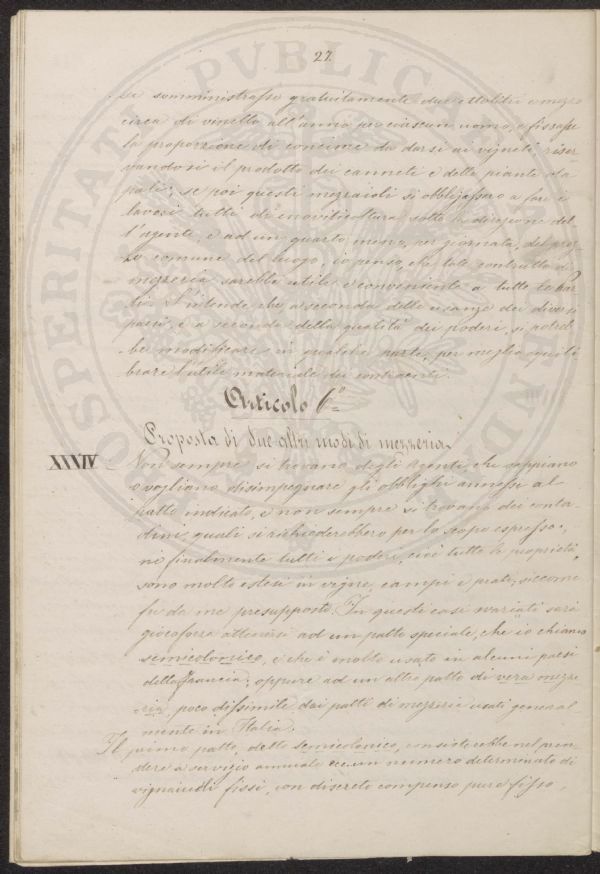 27.
si somministrasse gratuitamente due ettolitri e mezzo
circa di vinello all'anno per ciascun uomo, e fissasse
la proporzione di concime da darsi ai vigneti, riser-
vandosi il prodotto dei canneti e delle piante da
pali; se poi questi mezzaioli si obbligassero a fare i
lavori tutti di enoviticoltura sotto la direzione del-
l'agente, e ad un quarto meno, per giornata, del prez-
zo comune del luogo, io penso, che tale contratto di
mezzeria sarebbe utile e conveniente a tutte le par-
ti. S'intende che a seconda delle usanze dei diversi
paesi, e a seconda della qualità dei poderi, si potreb-
be modificare in qualche parte, per meglio equili-
brare l'utile materiale dei contraenti.
Articolo 6º
Proposta di due altri modi di mezzeria.
XXXIV Non sempre si trovano degli Agenti che sappiano
o vogliano disimpegnare gli obblighi annessi al
patto indicato, e non sempre si trovano dei conta-
dini quali si richiederebbero per lo scopo espresso;
nè finalmente tutti i poderi, cioè tutte le proprietà,
sono molto estesi in vigne, campi e prati, siccome
fu da me presupposto. In questi casi svariati sarà
giocoforza attenersi ad un patto speciale, che io chiamo
semicolonico, e che è molto usato in alcuni paesi
della Francia; oppure ad un altro patto di vera mezze-
ria, poco dissimile dai patti di mezzeria usati general-
mente in Italia.
Il primo patto, detto semicolonico, consisterebbe nel pren-
dere a servizio annuale un numero determinato di
vignaiuoli fissi, con discreto compenso pure fisso,